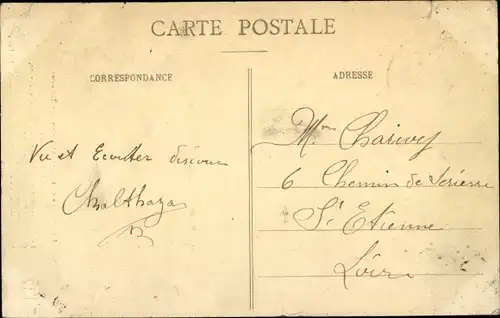 CARTE POSTALE
CORRESPONDANCE
ADRESSE
Vu et Ecouter discours
Chalthaza
Mme Charvey
6 Chemin de
St Etienne
Loire